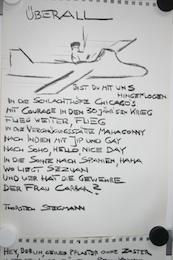 ÜBERALL
BIST DU MIT UNS
HINGEFLOGEN
IN DIE SCHLACHTHÖFE CHICAGO'S
MIT COURAGE IN DEN 30 JÄHRIGEN KRIEG
FLIEG WEITER, FLIEG
IN DIE VERGNÜGUNGSSTÄTTE MAHAGONNY
NACH INDIEN MIT JIP UND GAY
NACH SOHO, HELLO, NICE DAY
IN DIE SONNE NACH SPANIEN, HAHA
WO LIEGT SEZUAN
UND WER HAT DIE GEWEHRE
DER FRAU CARRAR?
THORSTEN STEGMANN
HEY, BERLIN, GEILES PFLASTER OHNE ZASTER